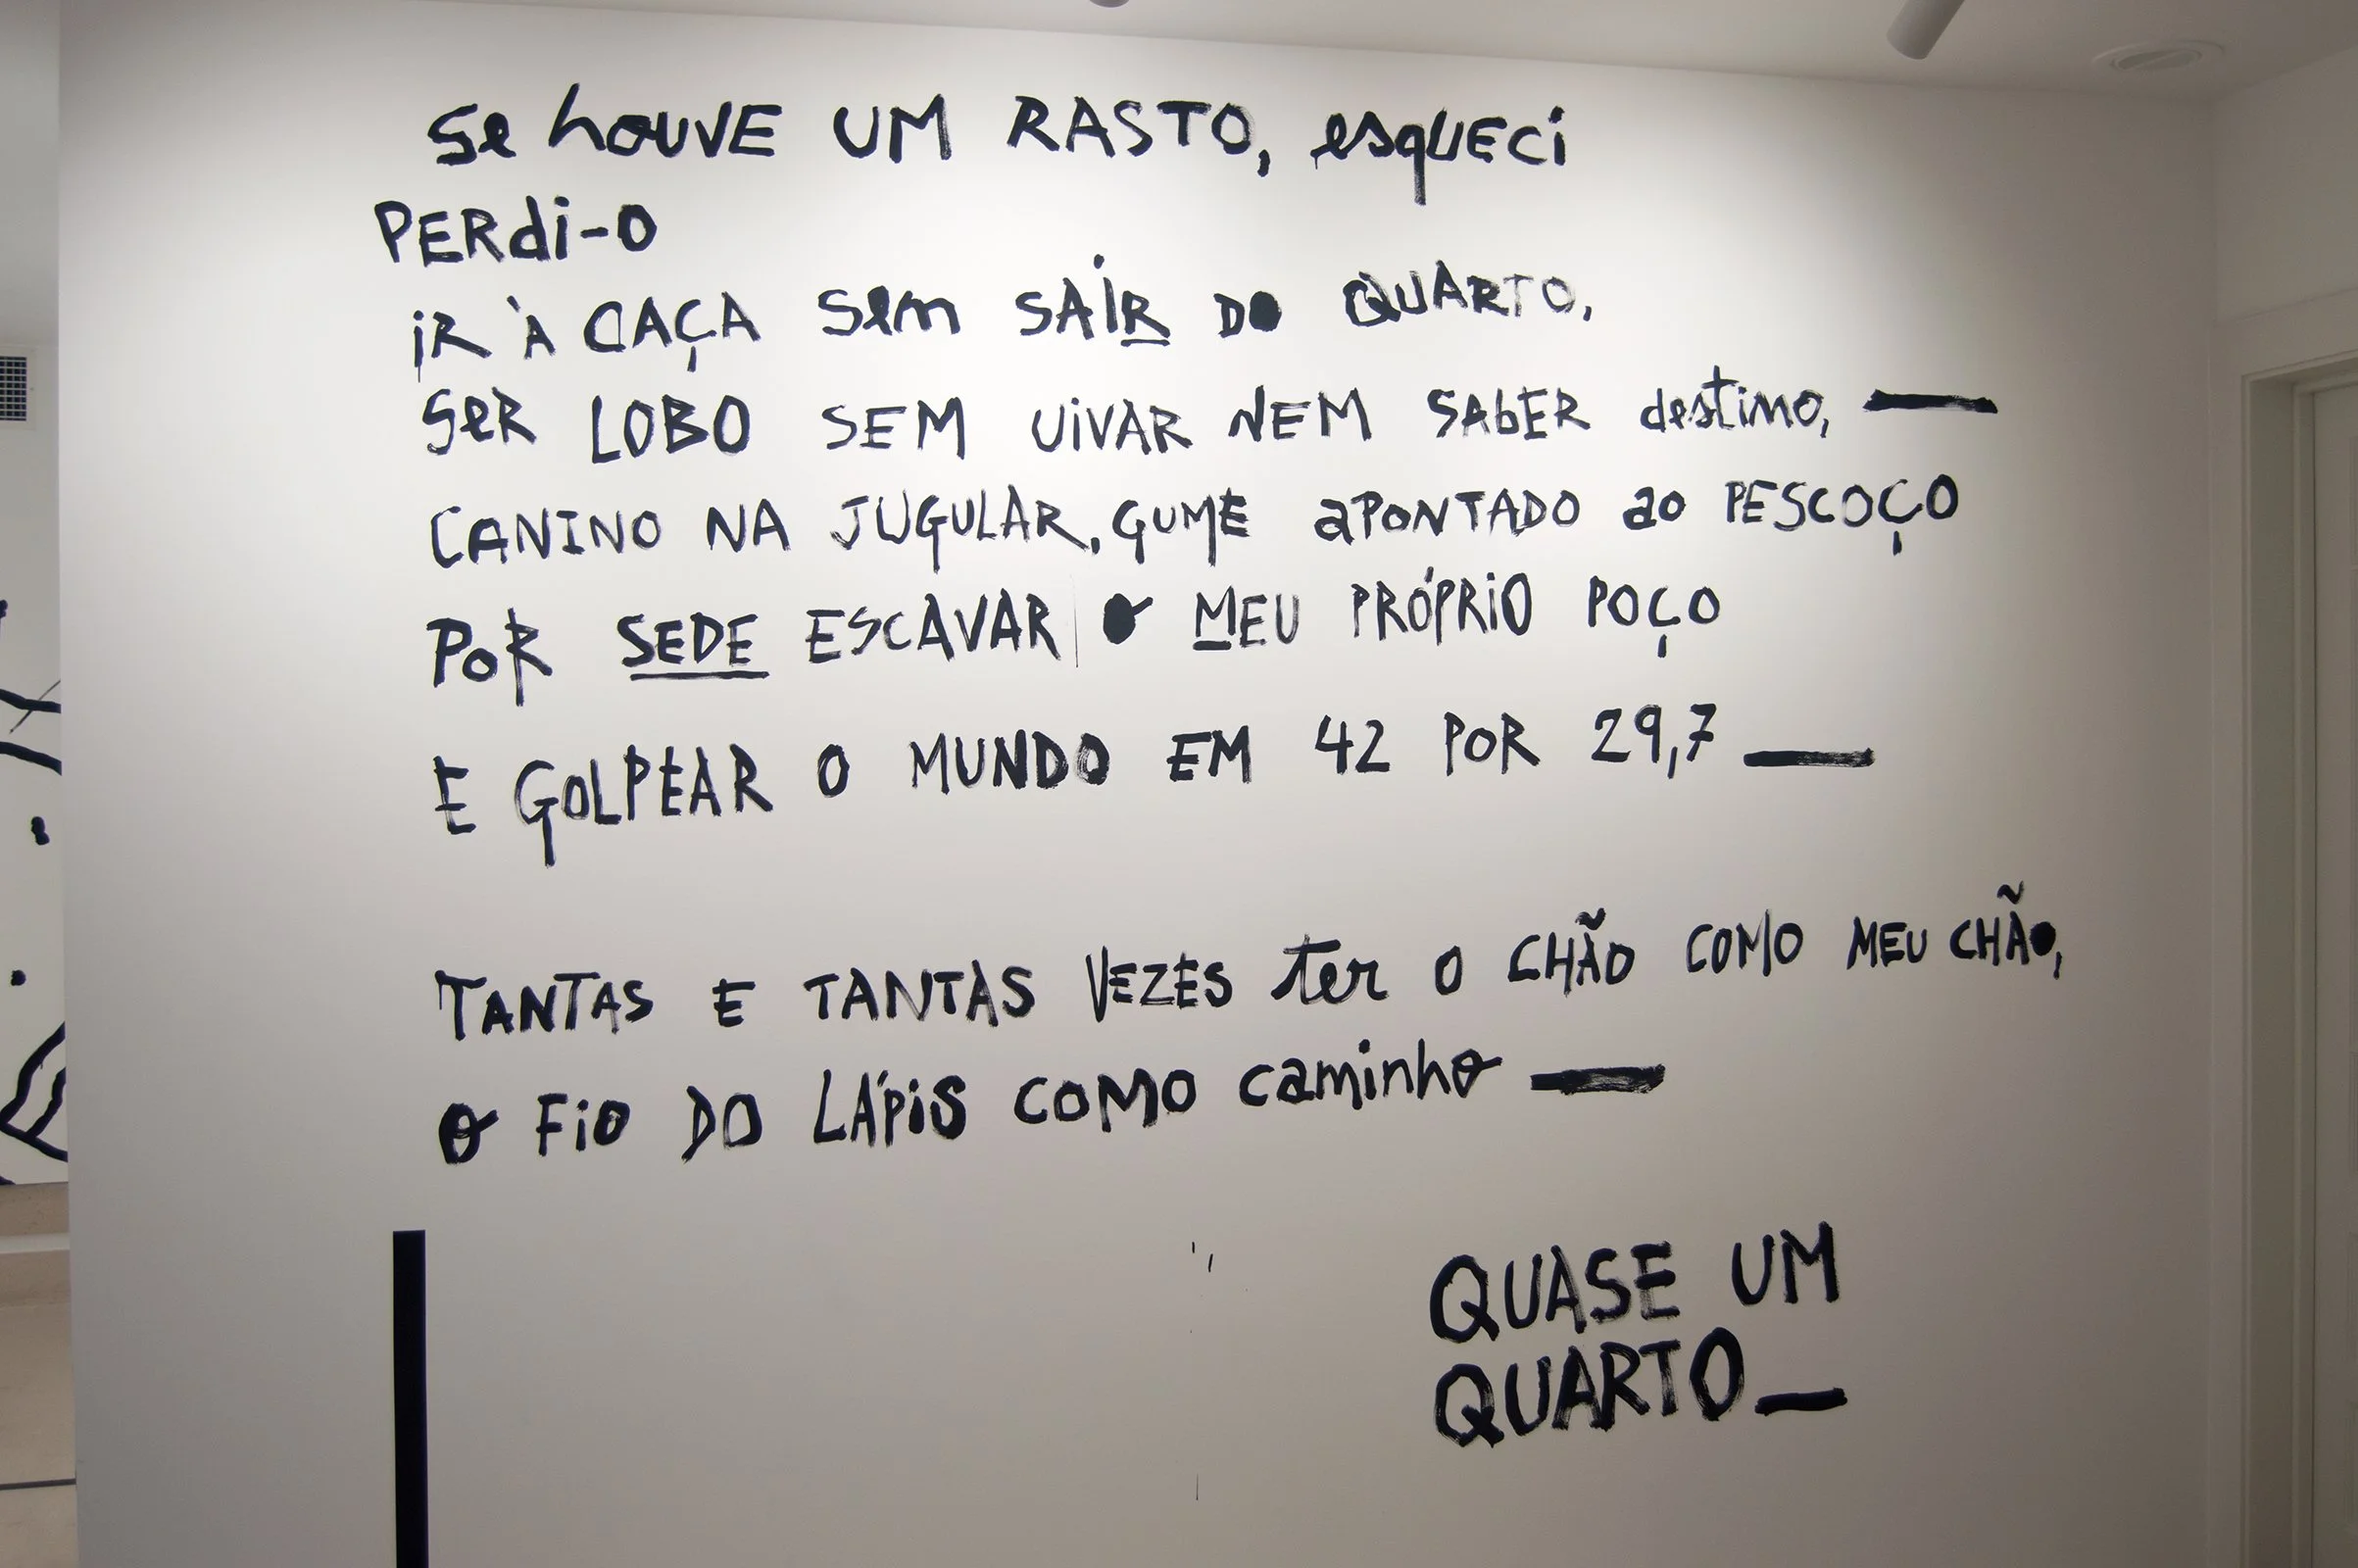 se houVE UM RASTO, esqUECi
PERdi-O
iR À CAÇA sem SAiR DO QUARTO,
seR LOBO SEM UiVAR NEM SAbER destino, —
CANINO NA JUGULAR, GUME aPONTADO ao PESCOÇO
PoR SEDE ESCAVAR o MEU PRÓPRiO POÇO
E GOLPEAR O MUNDO EM 42 POR 29,7 —
TANTAS E TANTAS VEZES ter O CHÃO COMO MEU CHÃO,
o FiO DO LÁPiS COMO caminho —
QUASE UM
QUARTO_